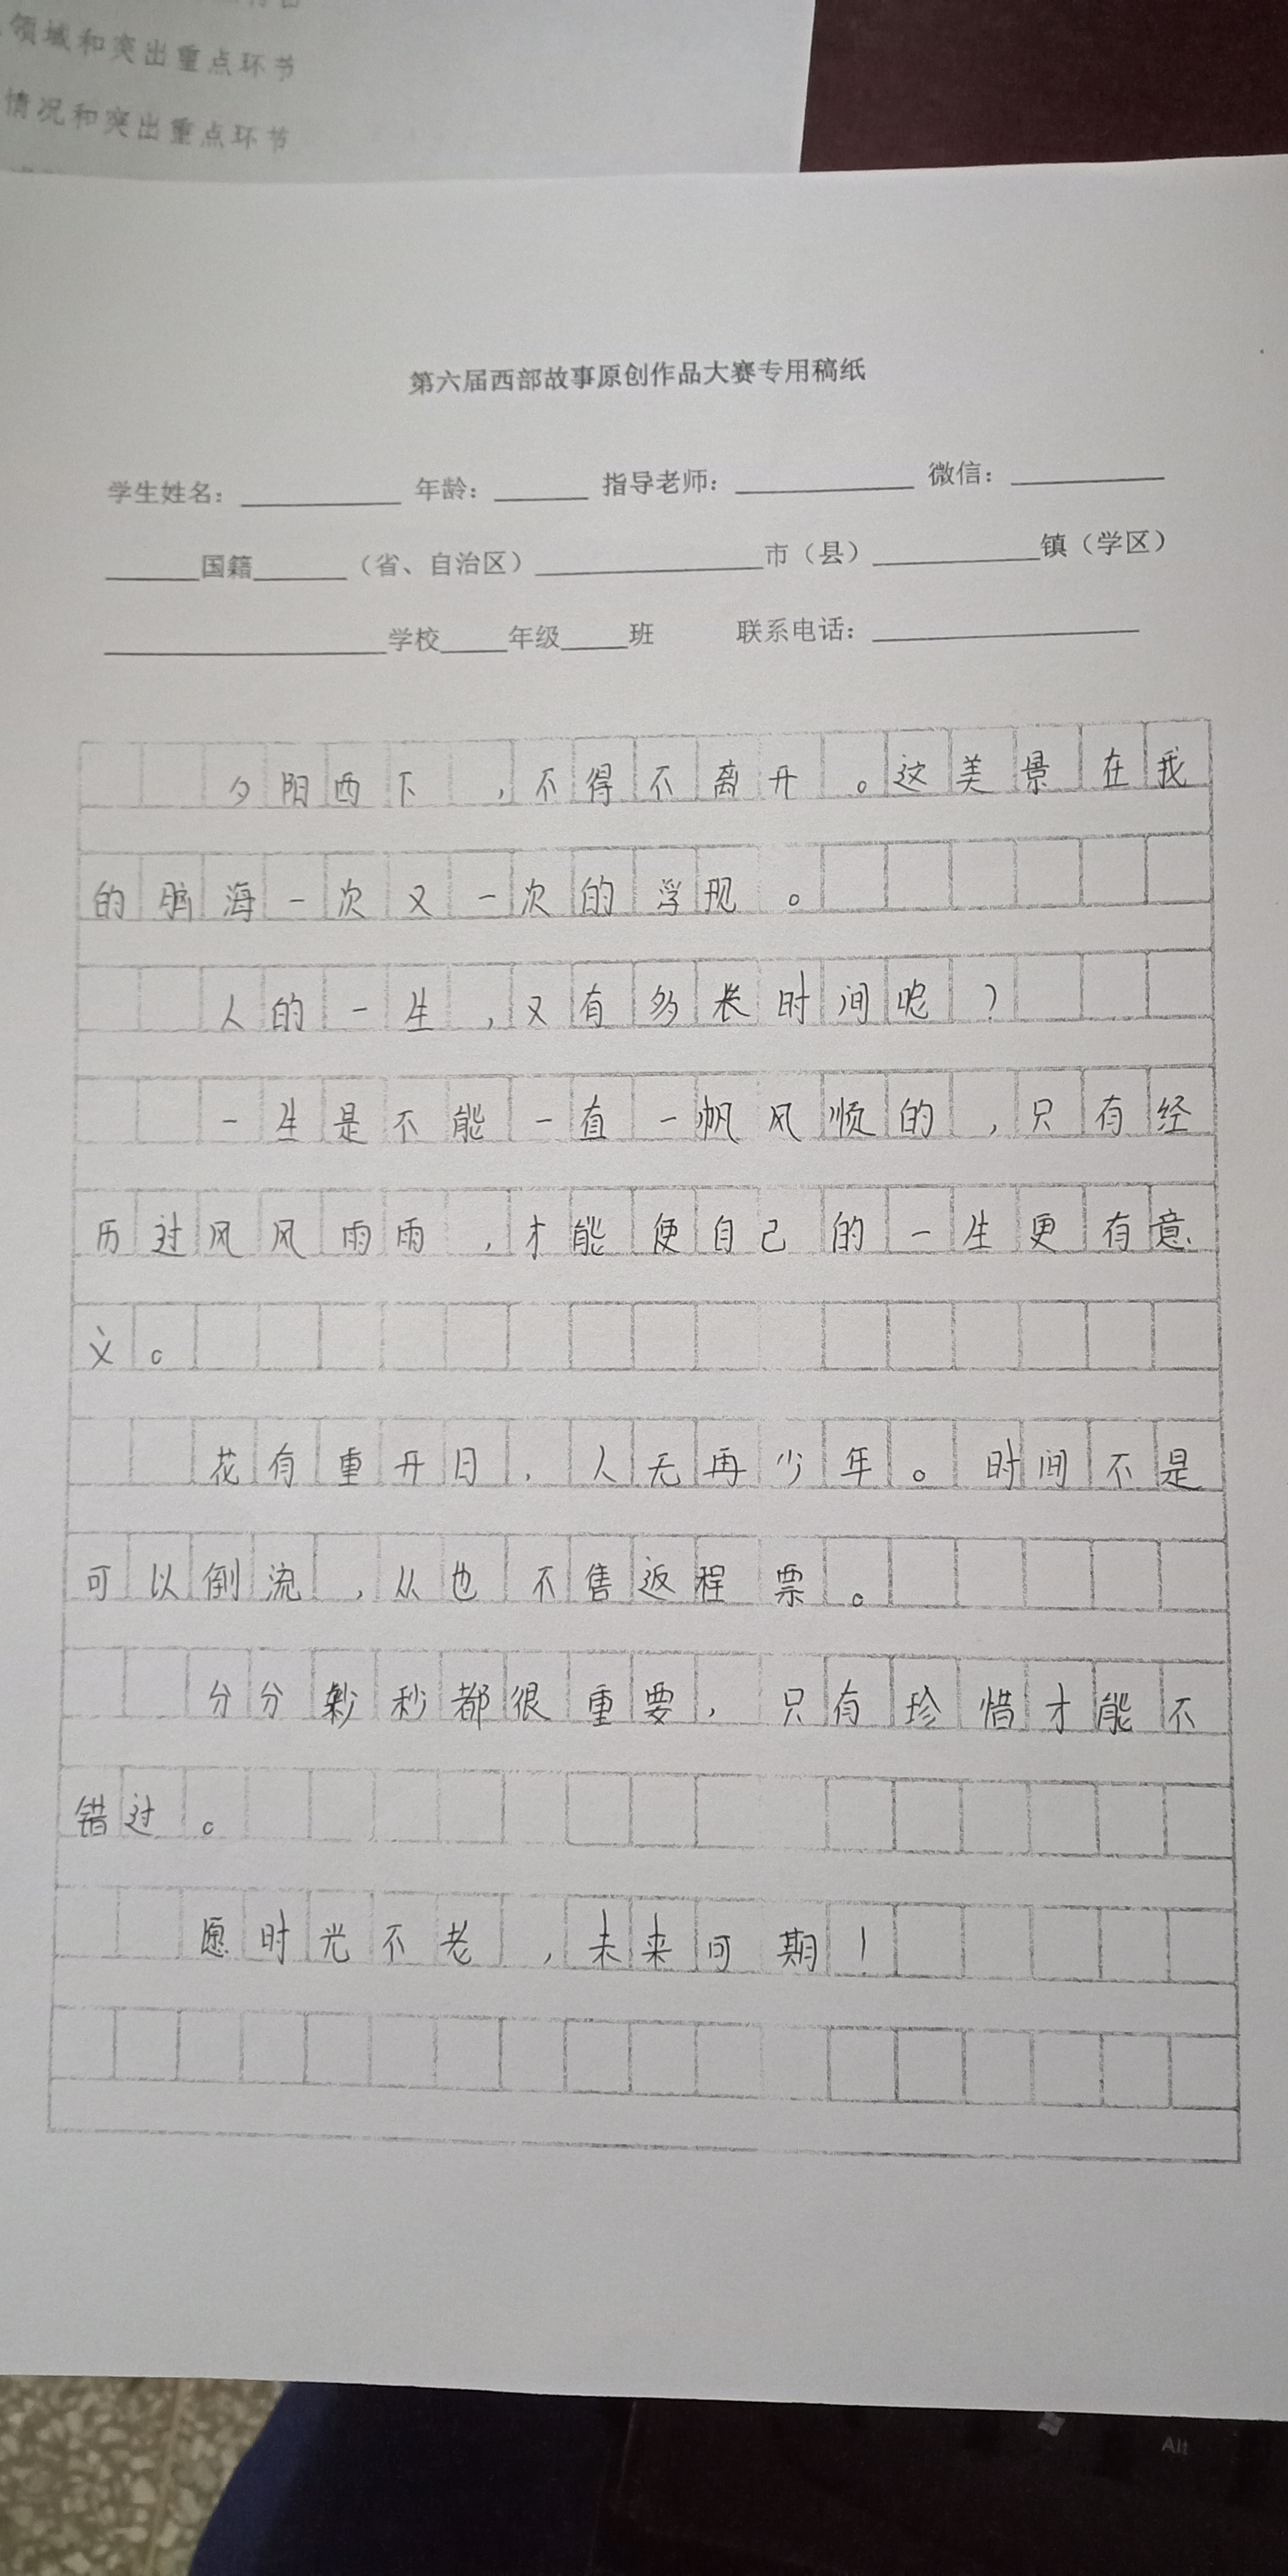 领域和突出重点环节
情况和突出重点环节
第六届西部故事原创作品大赛专用稿纸
学生姓名：________ 年龄：_____ 指导老师：_________ 微信：________
_____国籍_____（省、自治区）____________市（县）_________镇（学区）
_______________学校____年级____班 联系电话：______________
夕阳西下，不得不离开。这美景在我
的脑海一次又一次的浮现。
人的一生，又有多长时间呢？
一生是不能一直一帆风顺的，只有经
历过风风雨雨，才能使自己的一生更有意
义。
花有重开日，人无再少年。时间不是
可以倒流，从也不售返程票。
分分秒秒都很重要，只有珍惜才能不
错过。
愿时光不老，未来可期！
Alt